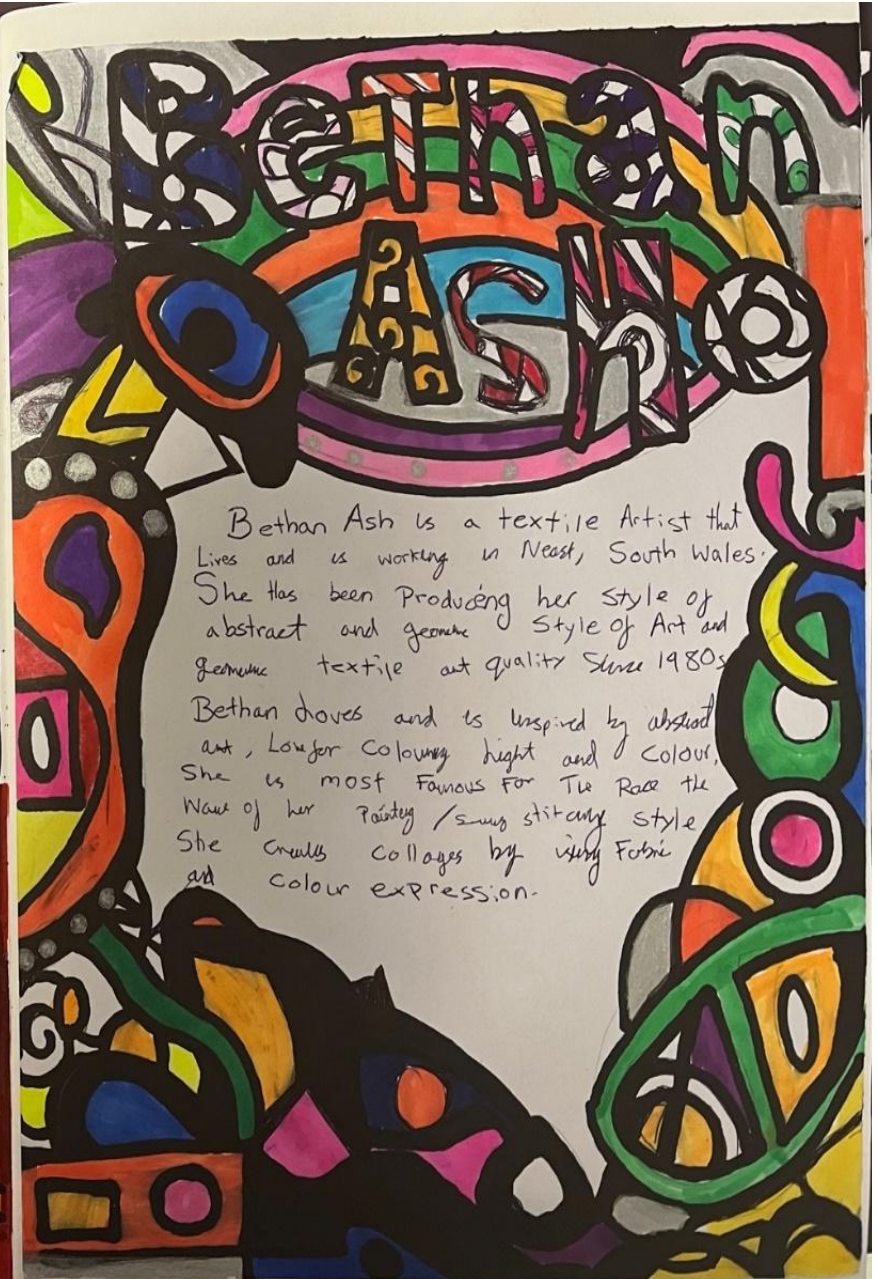 Bethan
Ash
Bethan Ash is a textile Artist that
Lives and is working in Neast, South Wales.
She Has been Producing her style of
abstract and geometric Style of Art and
geometric textile art quality Since 1980s
Bethan Loves and is inspired by abstract
art, Love for Colouring Light and Colour,
She is most Famous For The Race the
Wave of her Painting / stitching style
She Creates Collages by using Fabric
and Colour expression.